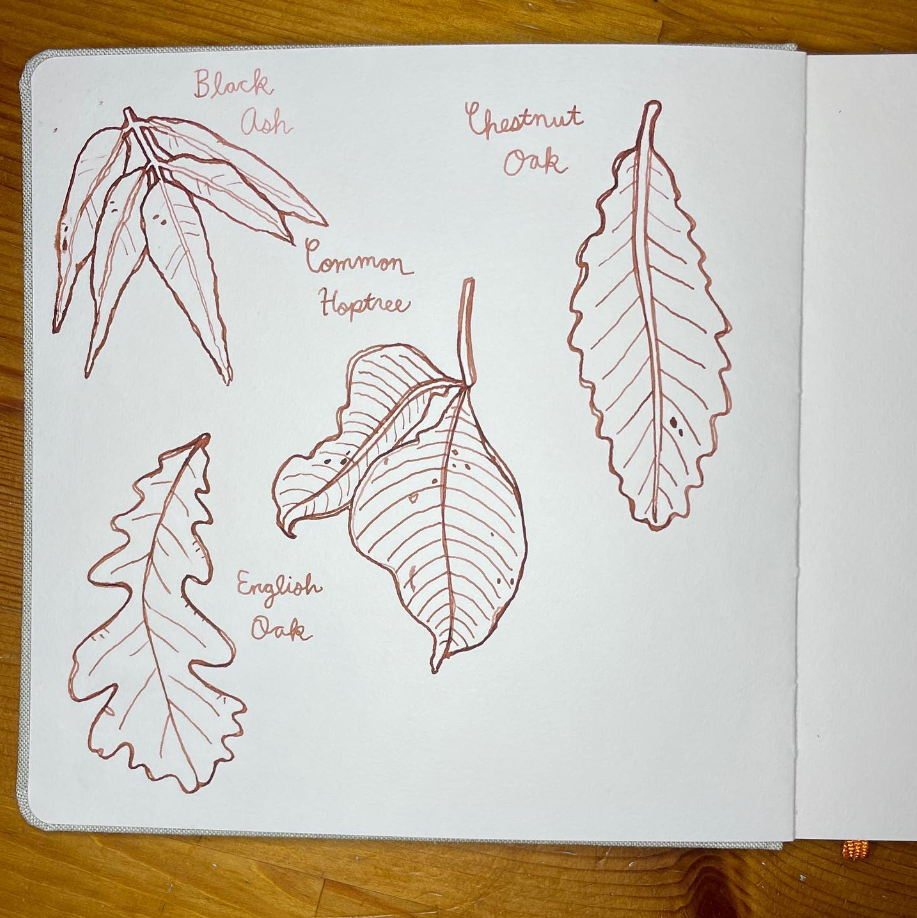 Black
Ash
Chestnut
Oak
Common
Hoptree
English
Oak